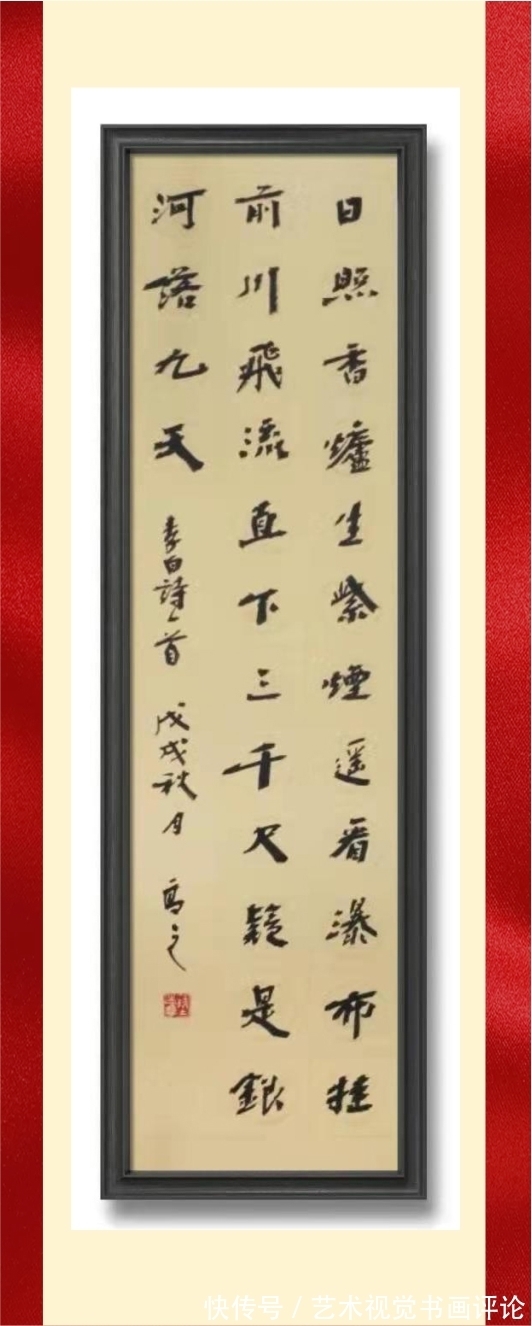 日照香爐生紫煙遥看瀑布挂
前川飛流直下三千尺疑是銀
河落九天
李白詩一首 戊戌秋月 高之
快传号 / 艺术视觉书画评论